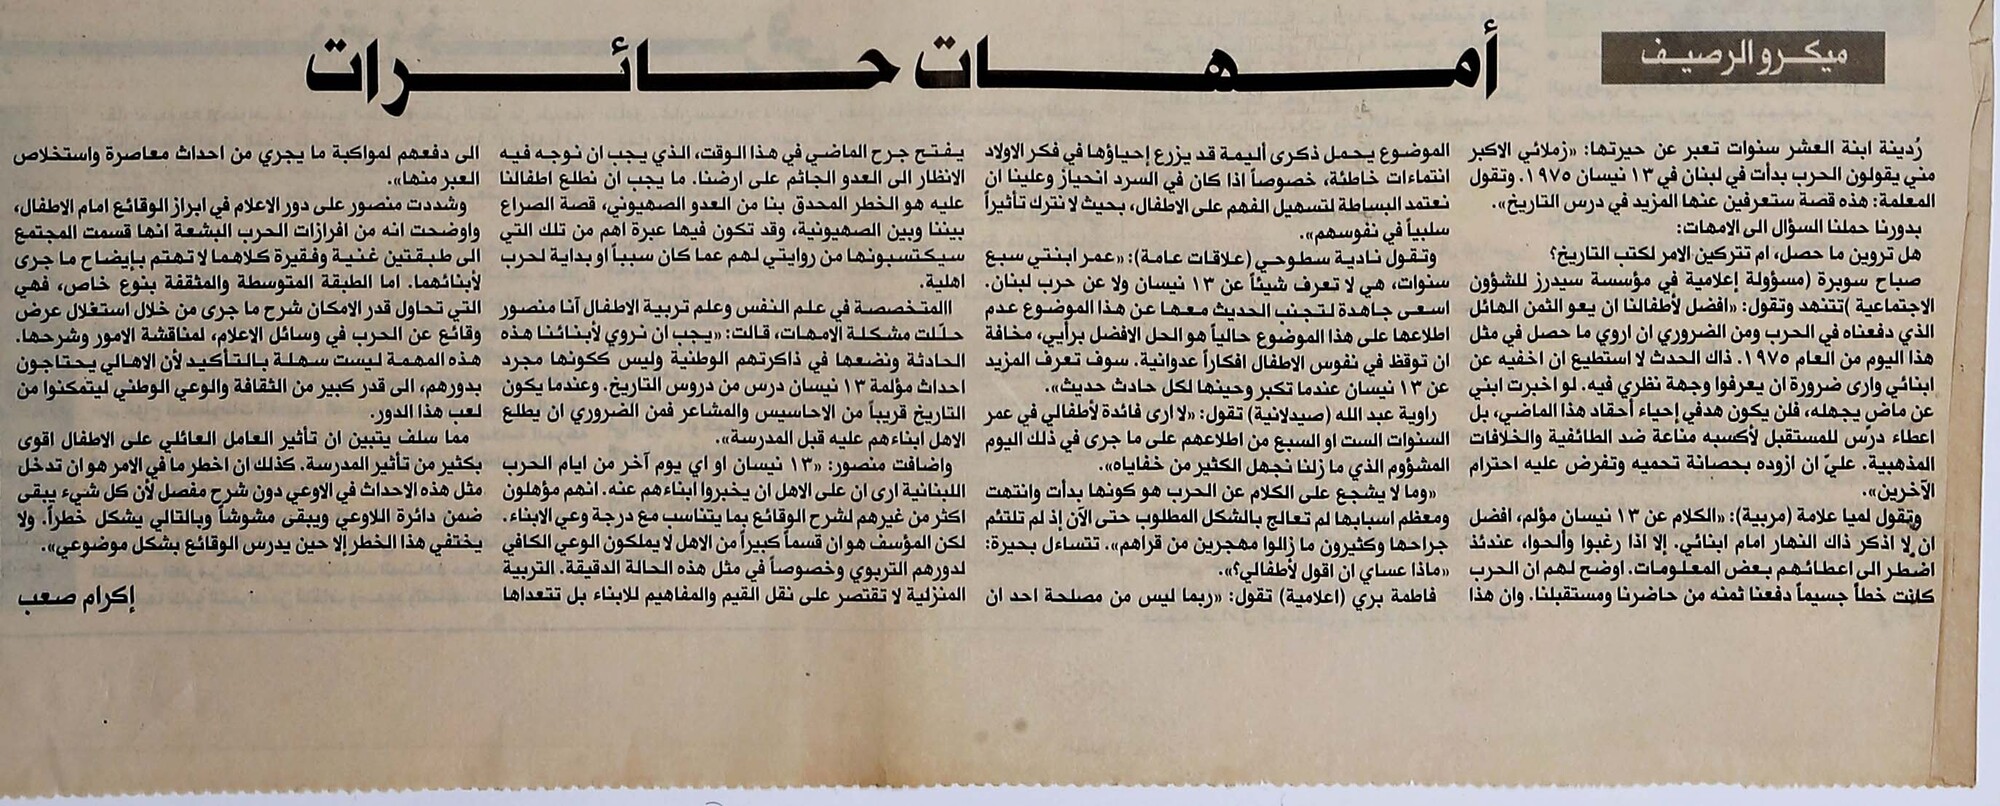 ميكرو الرصيف
أمهات حائرات
رُدينة ابنة العشر سنوات تعبر عن حيرتها: «زملائي الاكبر
مني يقولون الحرب بدأت في لبنان في ١٣ نيسان ١٩٧٥. وتقول
المعلمة: هذه قصة ستعرفين عنها المزيد في درس التاريخ».
بدورنا حملنا السؤال الى الامهات:
هل تروين ما حصل، ام تتركين الامر لكتب التاريخ؟
صباح سوبرة (مسؤولة إعلامية في مؤسسة سيدرز للشؤون
الاجتماعية )تتنهد وتقول: «افضل لأطفالنا ان يعو الثمن الهائل
الذي دفعناه في الحرب ومن الضروري ان اروي ما حصل في مثل
هذا اليوم من العام ١٩٧٥. ذاك الحدث لا استطيع ان اخفيه عن
ابنائي وارى ضرورة ان يعرفوا وجهة نظري فيه. لو اخبرت ابني
عن ماضٍ يجهله، فلن يكون هدفي إحياء أحقاد هذا الماضي، بل
اعطاء درس للمستقبل لأكسبه مناعة ضد الطائفية والخلافات
المذهبية. عليّ ان ازوده بحصانة تحميه وتفرض عليه احترام
الآخرين».
وتقول لميا علامة (مربية): «الكلام عن ١٣ نيسان مؤلم، افضل
ان لا اذكر ذاك النهار امام ابنائي. إلا اذا رغبوا وألحوا، عندئذ
اضطر الى اعطائهم بعض المعلومات. اوضح لهم ان الحرب
كانت خطأ جسيماً دفعنا ثمنه من حاضرنا ومستقبلنا. وان هذا
الموضوع يحمل ذكرى أليمة قد يزرع إحياؤها في فكر الاولاد
انتماءات خاطئة، خصوصاً اذا كان في السرد انحياز وعلينا ان
نعتمد البساطة لتسهيل الفهم على الاطفال، بحيث لا نترك تأثيراً
سلبياً في نفوسهم».
وتقول نادية سطوحي (علاقات عامة): «عمر ابنتي سبع
سنوات، هي لا تعرف شيئاً عن ١٣ نيسان ولا عن حرب لبنان.
اسعى جاهدة لتجنب الحديث معها عن هذا الموضوع عدم
اطلاعها على هذا الموضوع حالياً هو الحل الافضل برأيي، مخافة
ان توقظ في نفوس الاطفال افكاراً عدوانية. سوف تعرف المزيد
عن ١٣ نيسان عندما تكبر وحينها لكل حادث حديث».
راوية عبد الله (صيدلانية) تقول: «لا ارى فائدة لأطفالي في عمر
السنوات الست او السبع من اطلاعهم على ما جرى في ذلك اليوم
المشؤوم الذي ما زلنا نجهل الكثير من خفاياه».
«وما لا يشجع على الكلام عن الحرب هو كونها بدأت وانتهت
ومعظم اسبابها لم تعالج بالشكل المطلوب حتى الآن إذ لم تلتئم
جراحها وكثيرون ما زالوا مهجرين من قراهم». تتساءل بحيرة:
«ماذا عساي ان اقول لأطفالي؟».
فاطمة بري (اعلامية) تقول: «ربما ليس من مصلحة احد ان
يفتح جرح الماضي في هذا الوقت، الذي يجب ان نوجه فيه
الانظار الى العدو الجاثم على ارضنا. ما يجب ان نطلع اطفالنا
عليه هو الخطر المحدق بنا من العدو الصهيوني، قصة الصراع
بيننا وبين الصهيونية، وقد تكون فيها عبرة اهم من تلك التي
سيكتسبونها من روايتي لهم عما كان سبباً او بداية لحرب
اهلية.
االمتخصصة في علم النفس وعلم تربية الاطفال آنا منصور
حلّلت مشكلة الامهات، قالت: «يجب ان نروي لأبنائنا هذه
الحادثة ونضعها في ذاكرتهم الوطنية وليس ككونها مجرد
احداث مؤلمة ١٣ نيسان درس من دروس التاريخ. وعندما يكون
التاريخ قريباً من الاحاسيس والمشاعر فمن الضروري ان يطلع
الاهل ابناءهم عليه قبل المدرسة».
واضافت منصور: «١٣ نيسان او اي يوم آخر من ايام الحرب
اللبنانية ارى ان على الاهل ان يخبروا ابناءهم عنه. انهم مؤهلون
اكثر من غيرهم لشرح الوقائع بما يتناسب مع درجة وعي الابناء.
لكن المؤسف هو ان قسماً كبيراً من الاهل لا يملكون الوعي الكافي
لدورهم التربوي وخصوصاً في مثل هذه الحالة الدقيقة. التربية
المنزلية لا تقتصر على نقل القيم والمفاهيم للابناء بل تتعداها
الى دفعهم لمواكبة ما يجري من احداث معاصرة واستخلاص
العبر منها».
وشددت منصور على دور الاعلام في ابراز الوقائع امام الاطفال،
واوضحت انه من افرازات الحرب البشعة انها قسمت المجتمع
الى طبقتين غنية وفقيرة كلاهما لا تهتم بإيضاح ما جرى
لأبنائهما. اما الطبقة المتوسطة والمثقفة بنوع خاص، فهي
التي تحاول قدر الامكان شرح ما جرى من خلال استغلال عرض
وقائع عن الحرب في وسائل الاعلام، لمناقشة الامور وشرحها.
هذه المهمة ليست سهلة بالتأكيد لأن الاهالي يحتاجون
بدورهم، الى قدر كبير من الثقافة والوعي الوطني ليتمكنوا من
لعب هذا الدور.
مما سلف يتبين ان تأثير العامل العائلي على الاطفال اقوى
بكثير من تأثير المدرسة. كذلك ان اخطر ما في الامر هو ان تدخل
مثل هذه الاحداث في الاوعي دون شرح مفصل لأن كل شيء يبقى
ضمن دائرة اللاوعي ويبقى مشوشاً وبالتالي يشكل خطراً. ولا
يختفي هذا الخطر إلا حين يدرس الوقائع بشكل موضوعي».
إكرام صعب